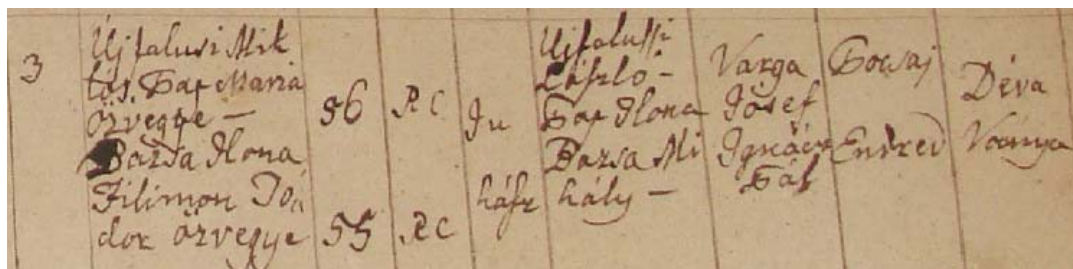 3
Újfalusi Mik
lós. Pap Maria
özvegye —
Bazsa Ilona
Filimon Tó
dor özvegye
56
R C
55
R C
Ju
hász
Ujfalussi
László —
Pap Ilona
Bazsa Mi
hály —
Varga
Josef
Ignácz
Pál
Bocsaj
Endred
Déva
Ványa